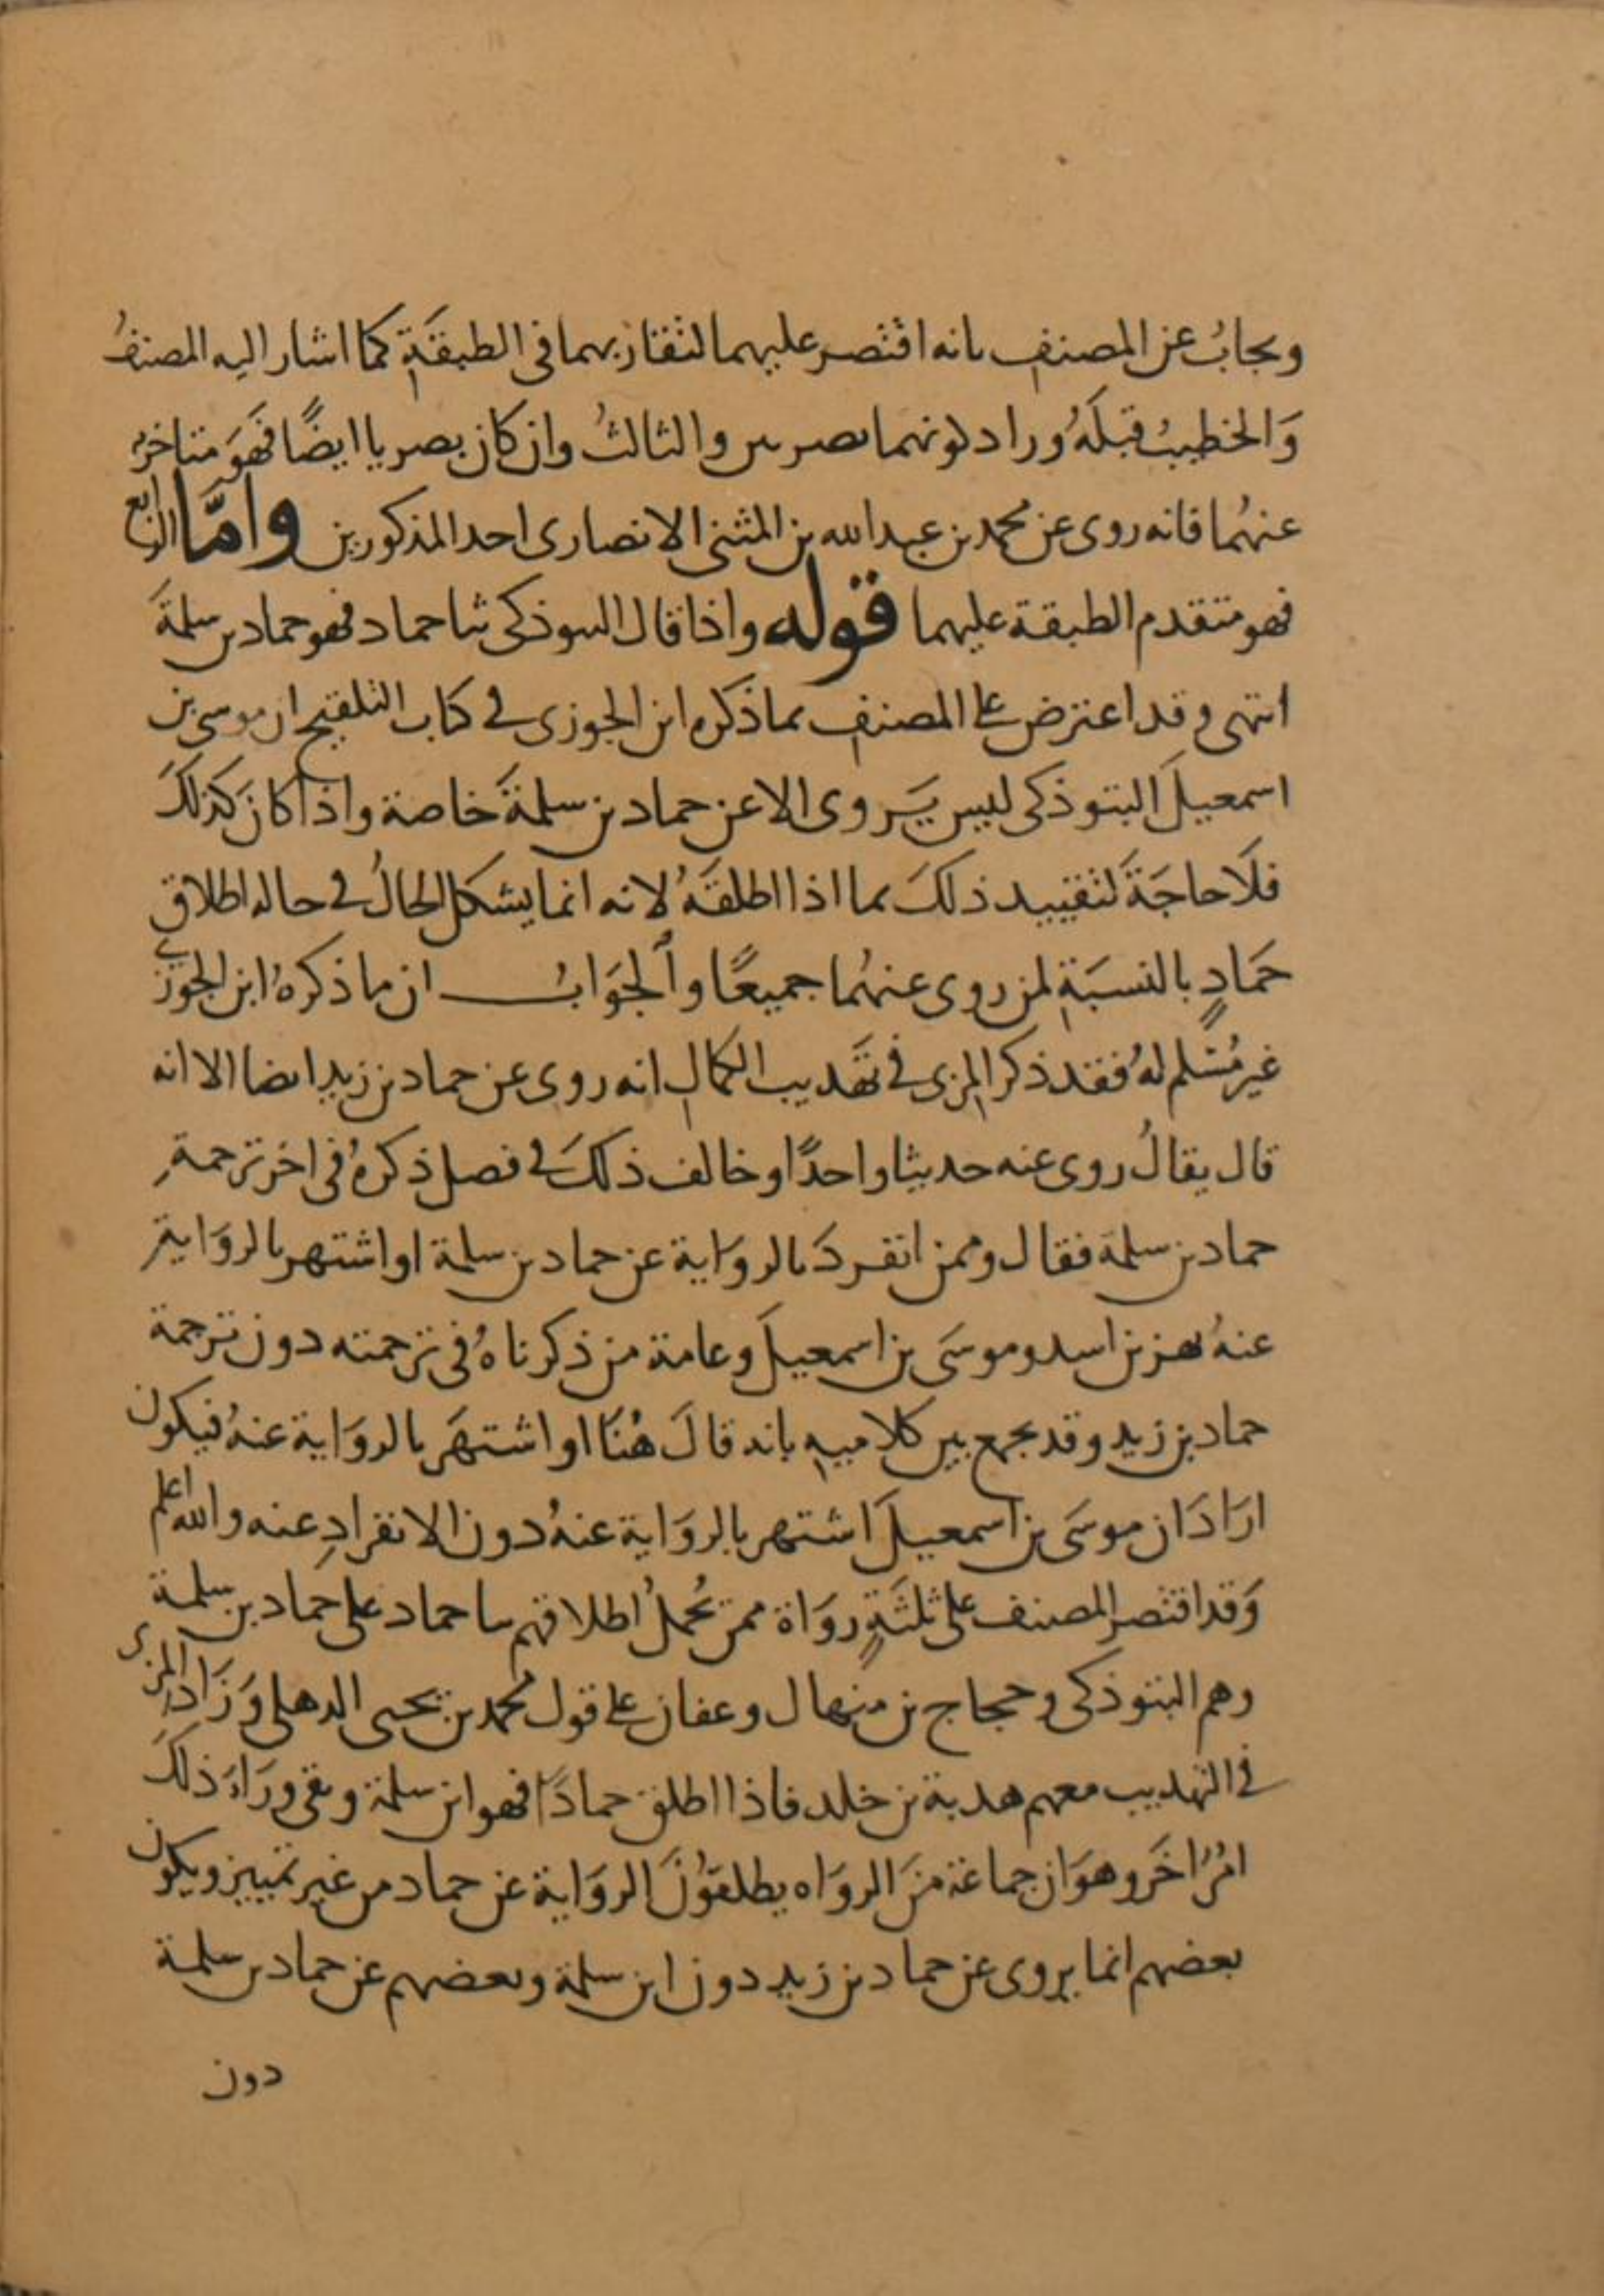 ويجابُ عن المصنف بانه اقتصر عليهما لتقاربهما في الطبقةِ كما اشار اليه المصنفُ
وَالخطيبُ قبلَهُ وزاد كونهما بصريين والثالثُ وان كان بصريا ايضًا فهَوَ متاخرٌ
عنهُما فانه روى عن محمد بن عبد الله بن المثنى الانصارى احد المذكورين وامَّا الرابع
فهو متقدم الطبقة عليهما قوله واذا قال التبوذكى ثنا حماد فهو حماد بن سلمةَ
انتهى وقد اعترض على المصنف بما ذكره ابن الجوزى في كتاب التلقيح ان موسى بن
اسمعيلَ التبوذكى ليس يَروى الا عن حماد بن سلمةَ خاصة واذا كان كذلكَ
فلَا حاجَةَ لتقييد ذلكَ بما اذا اطلقَهُ لانه انما يشكل الحالُ في حاله اطلاق
حَمادٍ بالنسبَةِ لمن روى عنهُما جميعًا وألجوَابُ ان ما ذكرهُ ابن الجوزي
غير مُسَلم لهُ فقد ذكر المزى في تهَذيب الكمالِ انه روى عن حماد بن زيدٍ ايضا الا انه
قال يقالُ روى عنه حديثا واحدًا وخالف ذلكَ في فصل ذكرهُ في اخر ترجمةِ
حماد بن سلمة فقال وممن انفردَ بالروَاية عن حماد بن سلمة او اشتهر بالروَايةِ
عنهُ بهز بن اسد وموسَى بن اسمعيلَ وعامة من ذكرناهُ في ترجمته دون ترجمة
حماد بن زيد وقد يجمع بين كلاميهِ بانه قالَ هُنَا او اشتهَر بالروَاية عنهُ فيكون
ارَادَ ان موسَى بن اسمعيلَ اشتهر بالروَاية عنهُ دون الانفرادِ عنه والله اعلم
وَقد اقتصر المصنف على ثلثَةٍ روَاة ممن يُحملُ اطلاقهم ثنا حماد على حماد بن سلمة
وهم التبوذكى وحجاج بن منهال وعفان على قول محمد بن يحيى الذهلى وَزَاد المزى
في التهذيب معهم هدبة بن خلد فاذا اطلق حمادًا فهو ابن سلمة وبقى ورَاءَ ذلكَ
امْرٌ اخَر وهوَ ان جماعَة منَ الروَاه يطلقوُنَ الروَاية عن حماد من غير تمييز ويكون
بعضهم انما يروى عن حماد بن زيد دون ابن سلمة وبعضهم عن حماد بن سلمة
دون